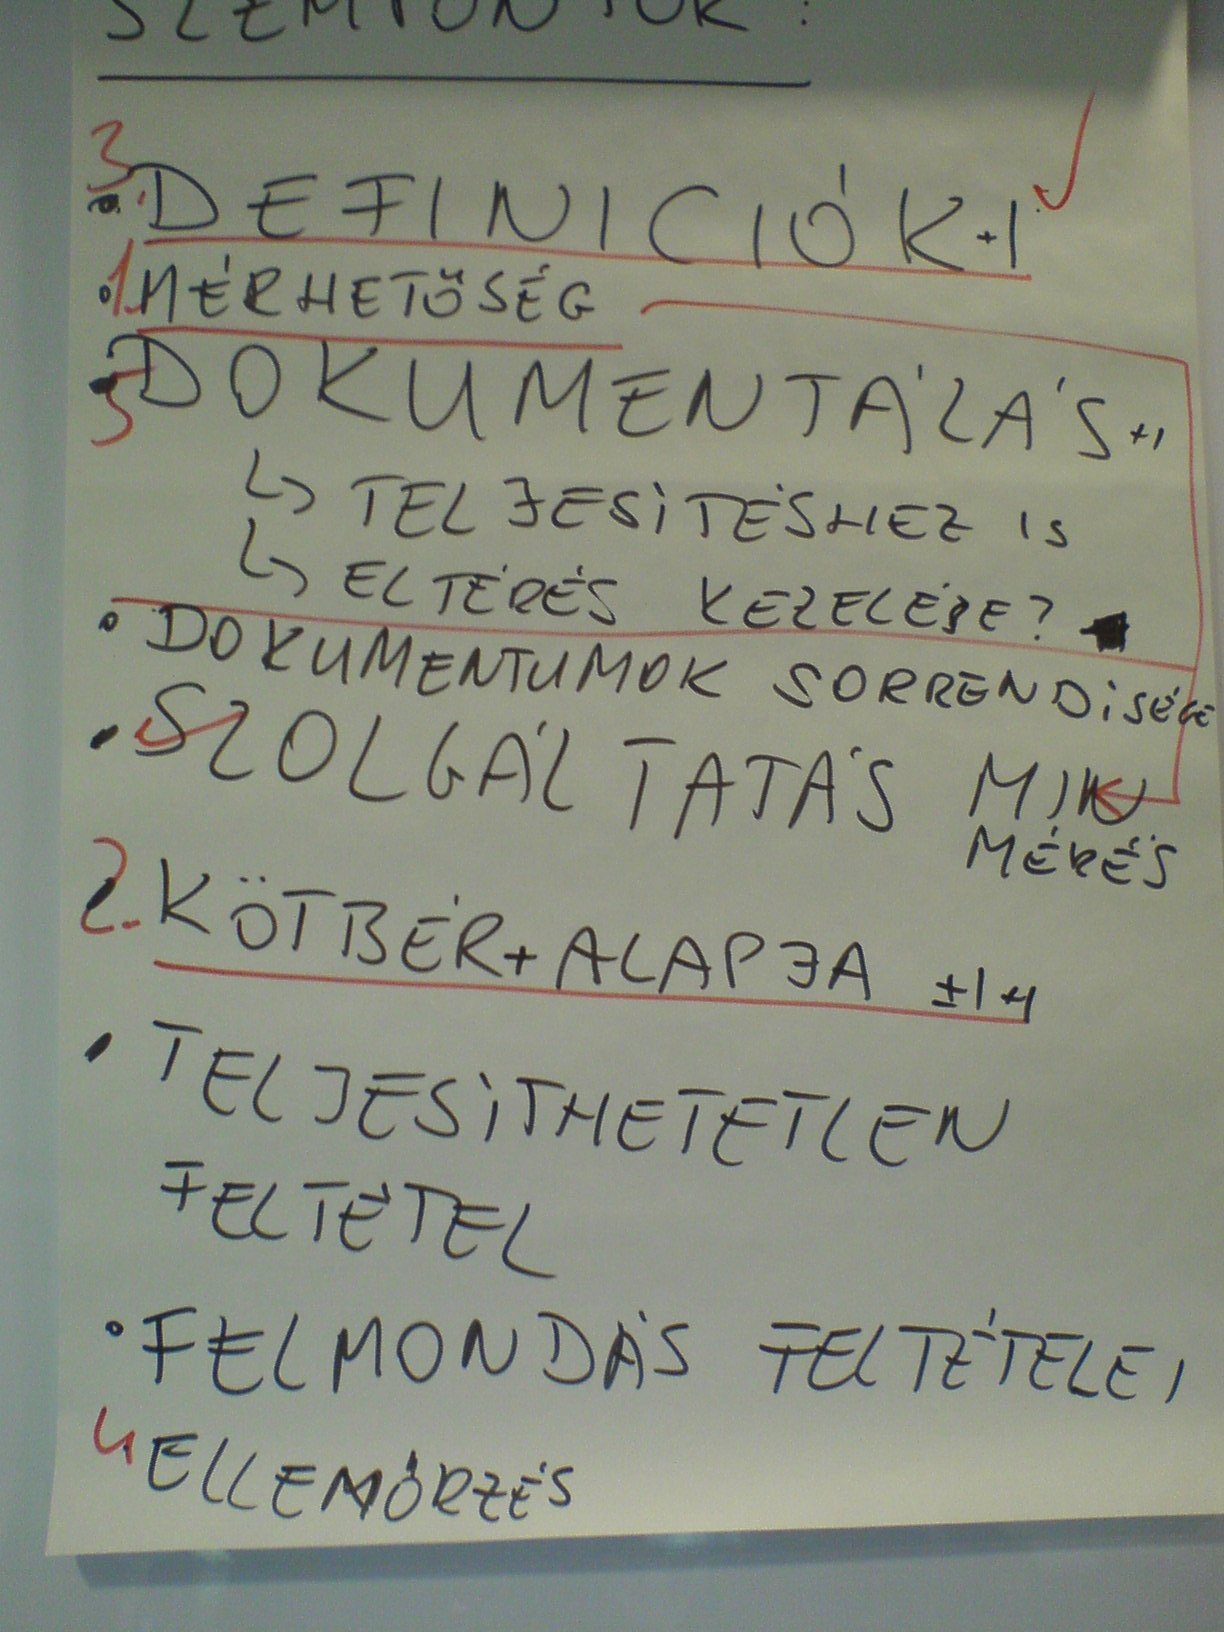 SZEMPONTOK:
3. DEFINICIÓK +1
1. MÉRHETŐSÉG
5 DOKUMENTÁLÁS +1
↳ TELJESITÉSHEZ IS
↳ ELTÉRÉS KEZELÉSE?
DOKUMENTUMOK SORRENDISÉGE
SZOLGÁLTATÁS MIN
MÉRÉS
2. KÖTBÉR + ALAPJA ±1 +1
TELJESITHETETLEN
FELTÉTEL
FELMONDÁS FELTÉTELEI
4 ELLENŐRZÉS